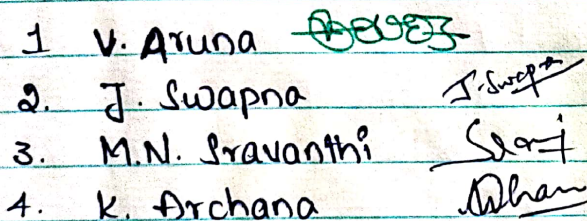 1 V. Aruna
2. J. Swapna J. Swapna
3. M.N. Sravanthi
4. K. Archana